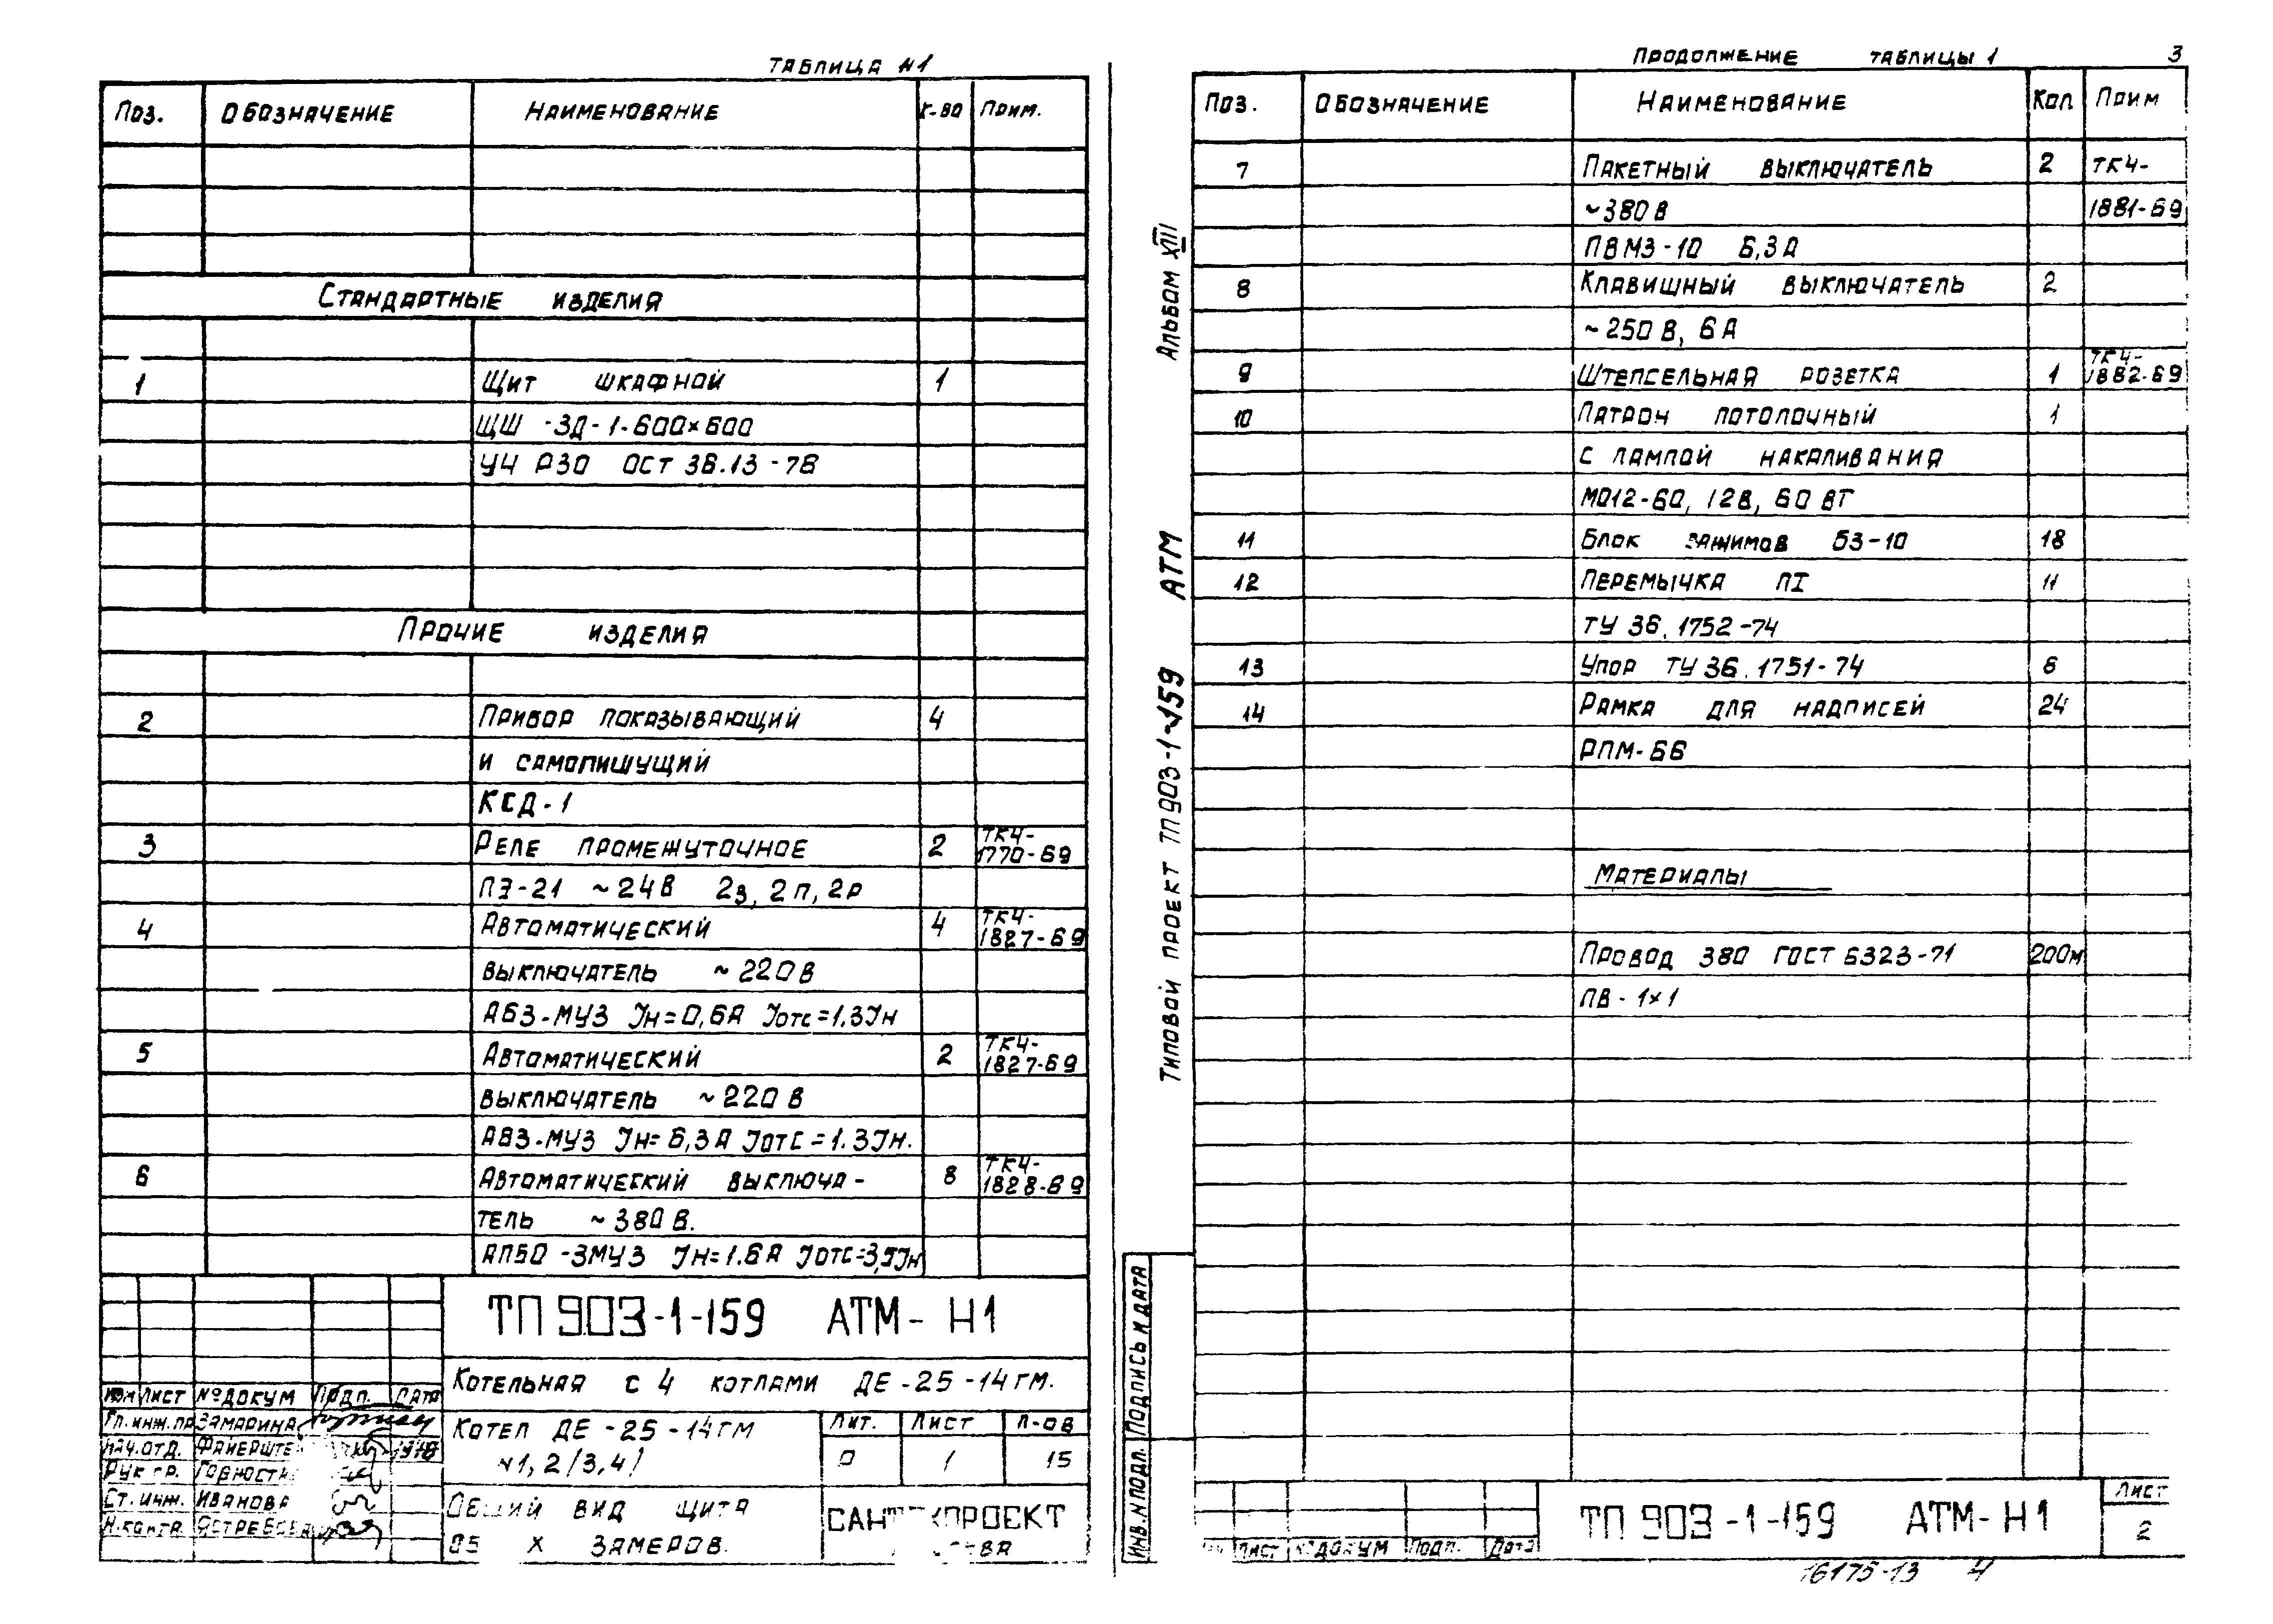 ТАБЛИЦА N1
ПОЗ. ОБОЗНАЧЕНИЕ НАИМЕНОВАНИЕ К-ВО ПРИМ.
СТАНДАРТНЫЕ ИЗДЕЛИЯ
1 ЩИТ ШКАФНОЙ 1
ЩШ-ЗД-1-600×600
УЧ Р30 ОСТ 36.13-76
ПРОЧИЕ ИЗДЕЛИЯ
2 ПРИБОР ПОКАЗЫВАЮЩИЙ 4
И САМОПИШУЩИЙ
КСД-1
3 РЕЛЕ ПРОМЕЖУТОЧНОЕ 2 ТК4-1770-69
ПЭ-21 ~24В 2з, 2п, 2р
4 АВТОМАТИЧЕСКИЙ 4 ТК4-1827-69
ВЫКЛЮЧАТЕЛЬ ~220В
АБ3-МУЗ Iн=0,6А Iотс=1.3Iн
5 АВТОМАТИЧЕСКИЙ 2 ТК4-1827-69
ВЫКЛЮЧАТЕЛЬ ~220В
АВ3-МУЗ Iн=6,3А Iотс=1.3Iн.
6 АВТОМАТИЧЕСКИЙ ВЫКЛЮЧА- 8 ТК4-1828-69
ТЕЛЬ ~380В.
АП50-3МУЗ Iн=1.6А Iотс=3,5Iн
ТП 903-1-159 АТМ-Н1
КОТЕЛЬНАЯ С 4 КОТЛАМИ ДЕ-25-14ГМ.
ИЗМ ЛИСТ №ДОКУМ ПОДП. ДАТА
ГЛ.ИНЖ.ПР ЗАМАРИНА
НАЧ.ОТД.
РУК ГР.
СТ.ИНЖ. ИВАНОВА
Н.КОНТР.
КОТЕЛ ДЕ-25-14ГМ
N1,2/3,4/
ЛИТ. ЛИСТ Л-ОВ
Р 1 15
ОБЩИЙ ВИД ЩИТА
ЗАМЕРОВ.
ПРОДОЛЖЕНИЕ ТАБЛИЦЫ 1 3
ПОЗ. ОБОЗНАЧЕНИЕ НАИМЕНОВАНИЕ КОЛ ПРИМ
7 ПАКЕТНЫЙ ВЫКЛЮЧАТЕЛЬ 2 ТК4-
~380В 1881-69
ПВМ3-10 6,3А
8 КЛАВИШНЫЙ ВЫКЛЮЧАТЕЛЬ 2
~250В, 6А
9 ШТЕПСЕЛЬНАЯ РОЗЕТКА 1 ТК4-1882-69
10 ПАТРОН ПОТОЛОЧНЫЙ 1
С ЛАМПОЙ НАКАЛИВАНИЯ
МО12-60, 12В, 60ВТ
11 БЛОК ЗАЖИМОВ БЗ-10 18
12 ПЕРЕМЫЧКА ПI 11
ТУ 36.1752-74
13 УПОР ТУ 36.1751-74 6
14 РАМКА ДЛЯ НАДПИСЕЙ 24
РПМ-66
МАТЕРИАЛЫ
ПРОВОД 380 ГОСТ 6323-71 200м
ПВ-1×1
Альбом XIII
АТМ
Типовой проект ТП903-1-159
ИНВ.N ПОДЛ. ПОДПИСЬ И ДАТА
ЛИСТ №ДОКУМ ПОДП. ДАТА
ТП 903-1-159 АТМ-Н1
ЛИСТ
2
16175-13 4